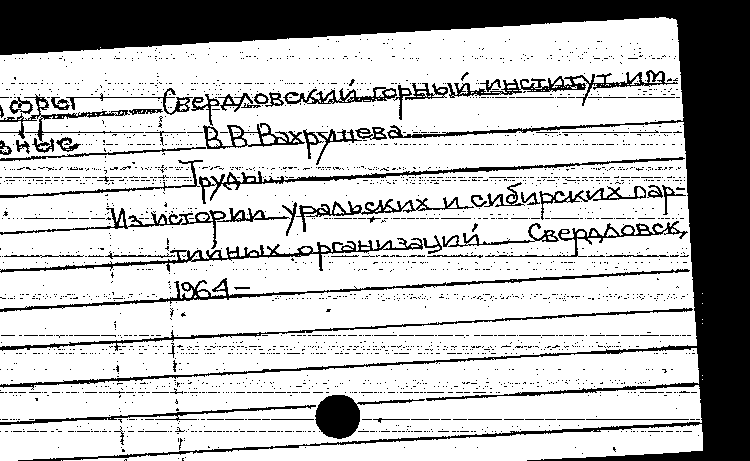 Свердловский горный институт им.
В.В. Вахрушева
Труды...
Из истории уральских и сибирских пар-
тийных организаций. Свердловск,
1964-